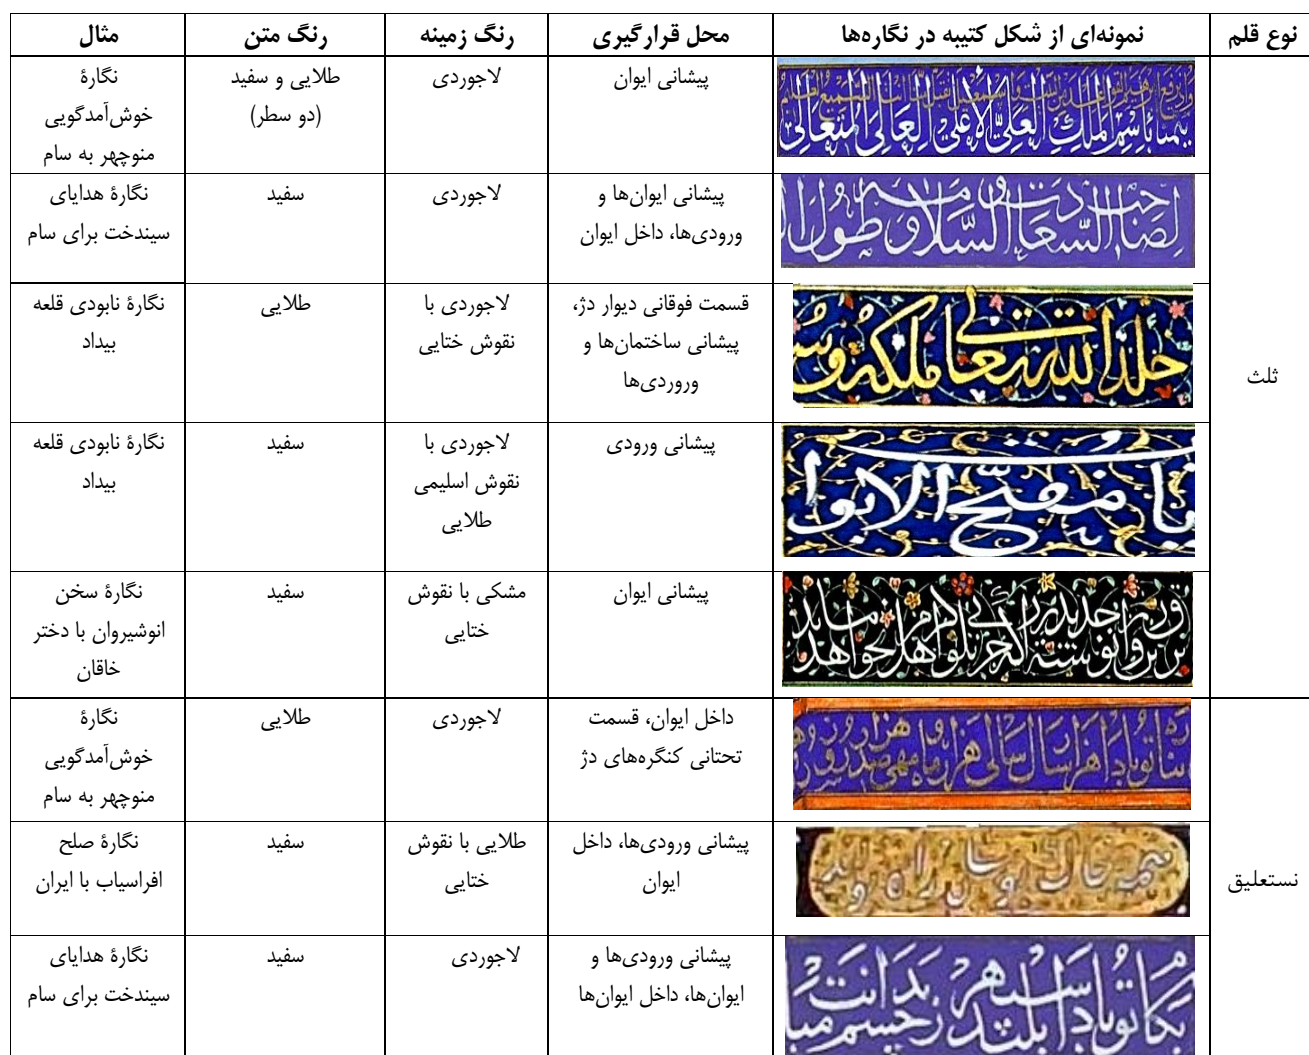 نوع قلم	نمونه‌ای از شکل کتیبه در نگاره‌ها	محل قرارگیری	رنگ زمینه	رنگ متن	مثال
ثلث
باسم الملک العلی الاعلی العالی المتعالی
پیشانی ایوان
لاجوردی
طلایی و سفید
(دو سطر)
نگارهٔ
خوش‌آمدگویی
منوچهر به سام
لصاحبه السعادت و السلامه و طول
پیشانی ایوان‌ها و
ورودی‌ها، داخل ایوان
لاجوردی
سفید
نگارهٔ هدایای
سیندخت برای سام
خلد الله تعالی ملکه و
قسمت فوقانی دیوار دژ،
پیشانی ساختمان‌ها و
وروردی‌ها
لاجوردی با
نقوش ختایی
طلایی
نگارهٔ نابودی قلعه
بیداد
یا مفتح الابوا
پیشانی ورودی
لاجوردی با
نقوش اسلیمی
طلایی
سفید
نگارهٔ نابودی قلعه
بیداد
پیشانی ایوان
مشکی با نقوش
ختایی
سفید
نگارهٔ سخن
انوشیروان با دختر
خاقان
نستعلیق
داخل ایوان، قسمت
تحتانی کنگره‌های دژ
لاجوردی
طلایی
نگارهٔ
خوش‌آمدگویی
منوچهر به سام
پیشانی ورودی‌ها، داخل
ایوان
طلایی با نقوش
ختایی
سفید
نگارهٔ صلح
افراسیاب با ایران
پیشانی ورودی‌ها و
ایوان‌ها، داخل ایوان‌ها
لاجوردی
سفید
نگارهٔ هدایای
سیندخت برای سام